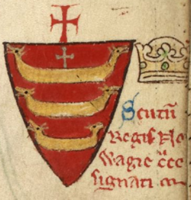 Scutū
Regis No
wagie c̄ce
signati